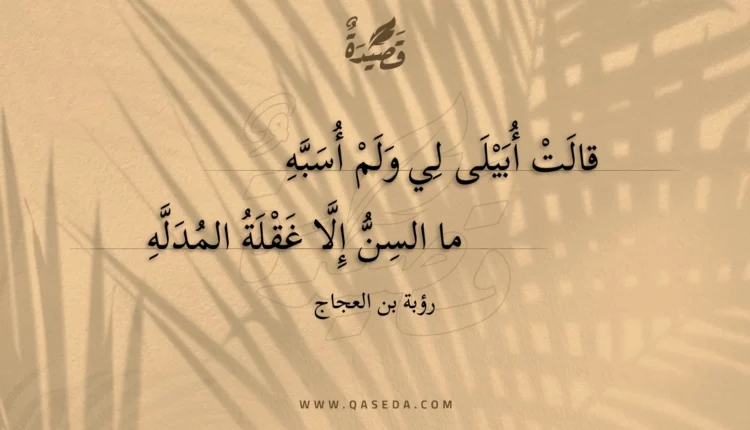 قَصِيْدَةٌ
قالَتْ أُبَيْلَى لِي وَلَمْ أُسَبَّهِ
ما السِنُّ إِلَّا غَفْلَةُ المُدَلَّهِ
رؤبة بن العجاج
WWW.QASEDA.COM